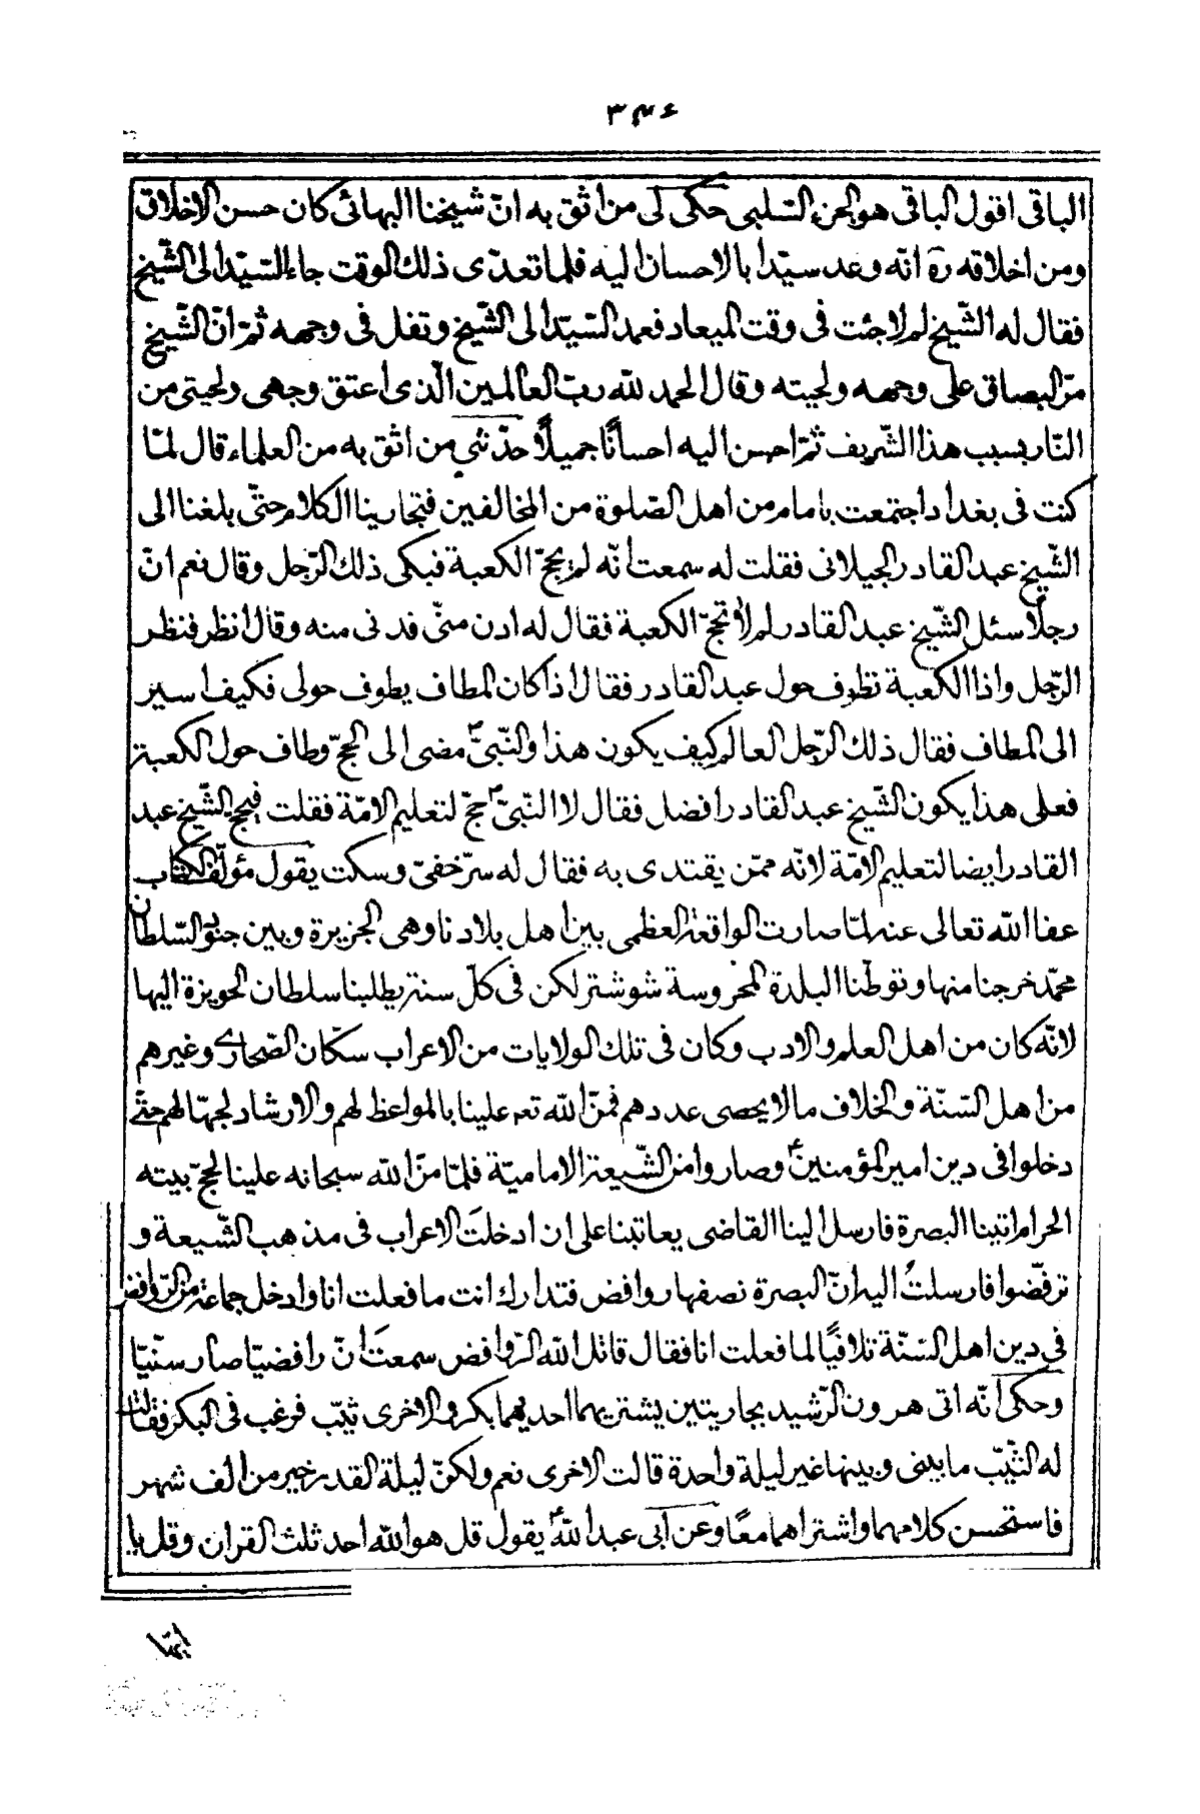 ٣٤٦
الباقى اقول الباقى هو الجزء السّلبى حكى لى من اثق به انّ شيخنا البهائى كان حسن الاخلاق
ومن اخلاقه ره انّه وعد سيّدا بالاحسان اليه فلما تعدّى ذلك الوقت جاء السّيّد الى الشّيخ
فقال له الشّيخ لم لا جئت فى وقت الميعاد فعمد السّيّد الى الشّيخ وتفل فى وجهه ثمّ انّ الشّيخ
مرّ البصاق على وجهه ولحيته وقال الحمد للّه ربّ العالمين الّذى اعتق وجهى ولحيتى من
النّار بسبب هذا الشّريف ثمّ احسن اليه احسانًا جميلًا حدّثنى من اثق به من العلماء قال لمّا
كنت فى بغداد اجتمعت بامام من اهل الصّلوة من المخالفين فتجارينا الكلام حتّى بلغنا الى
الشّيخ عبد القادر الجيلانى فقلت له سمعت انّه لم يحجّ الكعبة فبكى ذلك الرّجل وقال نعم انّ
رجلًا سئل الشّيخ عبد القادر لم لا تحجّ الكعبة فقال له ادن منّى فدنى منه وقال انظر فنظر
الرّجل واذا الكعبة تطوف حول عبد القادر فقال اذا كان المطاف يطوف حولى فكيف اسير
الى المطاف فقال ذلك الرّجل العالم كيف يكون هذا والنّبىّ ص مضى الى الحجّ وطاف حول الكعبة
فعلى هذا يكون الشّيخ عبد القادر افضل فقال لا النّبىّ ص حجّ لتعليم الامّة فقلت فيحج الشّيخ عبد
القادر ايضا لتعليم الامّة لانّه ممّن يقتدى به فقال له سرّ خفىّ وسكت يقول مؤلّف الكتاب
عفا اللّه تعالى عنه لمّا صارت الواقعة العظمى بين اهل بلادنا وهى الجزيرة وبين جنود السّلطان
محمّد خرجنا منها وتوطّنا البلدة المحروسة شوشتر لكن فى كلّ سنة يطلبنا سلطان الحويزة اليها
لانّه كان من اهل العلم والادب وكان فى تلك الولايات من الاعراب سكّان الصّحارى وغيرهم
من اهل السّنّة والخلاف ما لا يحصى عددهم فمنّ اللّه تعه علينا بالمواعظ لهم والارشاد لجهّالهم حتّى
دخلوا فى دين امير المؤمنين ع وصاروا من الشّيعة الاماميّة فلمّا منّ اللّه سبحانه علينا لحجّ بيته
الحرام اتينا البصرة فارسل الينا القاضى يعاتبنا على ان ادخلتَ الاعراب فى مذهب الشّيعة و
ترفّضوا فارسلتُ اليه انّ البصرة نصفها روافض فتدارك انت ما فعلت انا وادخل جماعة من الرّوافض
فى دين اهل السّنّة تلافيًا لما فعلت انا فقال قاتل اللّه الرّوافض سمعتَ انّ رافضيّا صار سنيّا
وحكى انّه اتى هرون الرّشيد بجاريتين يشتريهما احديهما بكر والاخرى ثيّب فرغب فى البكر فقالت
له الثّيّب ما بينى وبينها غير ليلة واحدة قالت الاخرى نعم ولكنّ ليلة القدر خير من الف شهر
فاستحسن كلامهما واشتراهما معًا وعن ابى عبد اللّه ع يقول قل هو اللّه احد ثلث القران وقل يا
ايّها